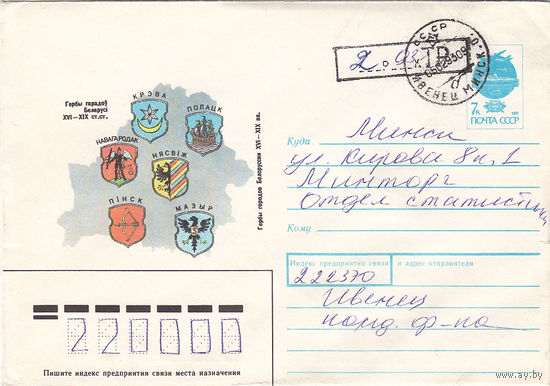 Гербы гарадоў
Беларусі
XVI—XIX ст.ст.
КРЭВА
ПОЛАЦК
НАВАГАРОДАК
НЯСВІЖ
ПІНСК
МАЗЫР
Гербы городов Белоруссии XVI—XIX вв.
7к
ПОЧТА СССР
СССР
ИВЕНЕЦ МИНСК. О.
Куда
Минск
ул. Кирова 8 к. 1
Минторг
Отдел статистики
Кому
Индекс предприятия связи и адрес отправителя
222370
Ивенец
конд. ф-ка
220000
Пишите индекс предприятия связи места назначения
www.ay.by